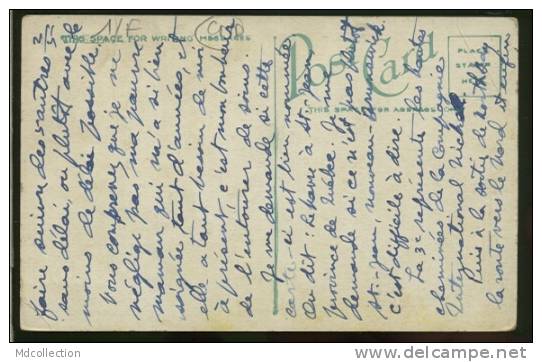 N/F
(CND)
2/5
THIS SPACE FOR WRITING MESSAGES
Post Card
THIS SPACE FOR ADDRESS ONLY
PLACE
STAMP
HERE
faire suivre des vautres
sans délai, ou plutôt avec le
moins de délai possible,
vous comprenez que je ne
néglige pas ma pauvre
maman qui m'a si bien
soignée tant d'années, et
elle a tant besoin de moi
à présent, c'est mon bonheur
de l'entourer de soins.
Je me demande si cette
carte-ci est bien nommée
On dit: Lebanon à St. Jean
province de Québec. Je me
demande si ce n'est pas plutôt
St. Jean nouveau-brunswick.
c'est difficile à dire.
La 3e représente les hautes
cheminées de la Compagnie
International Nickel.
Puis à la sortie de
la route vers le Nord
MDcollection
http://www.delcampe.net